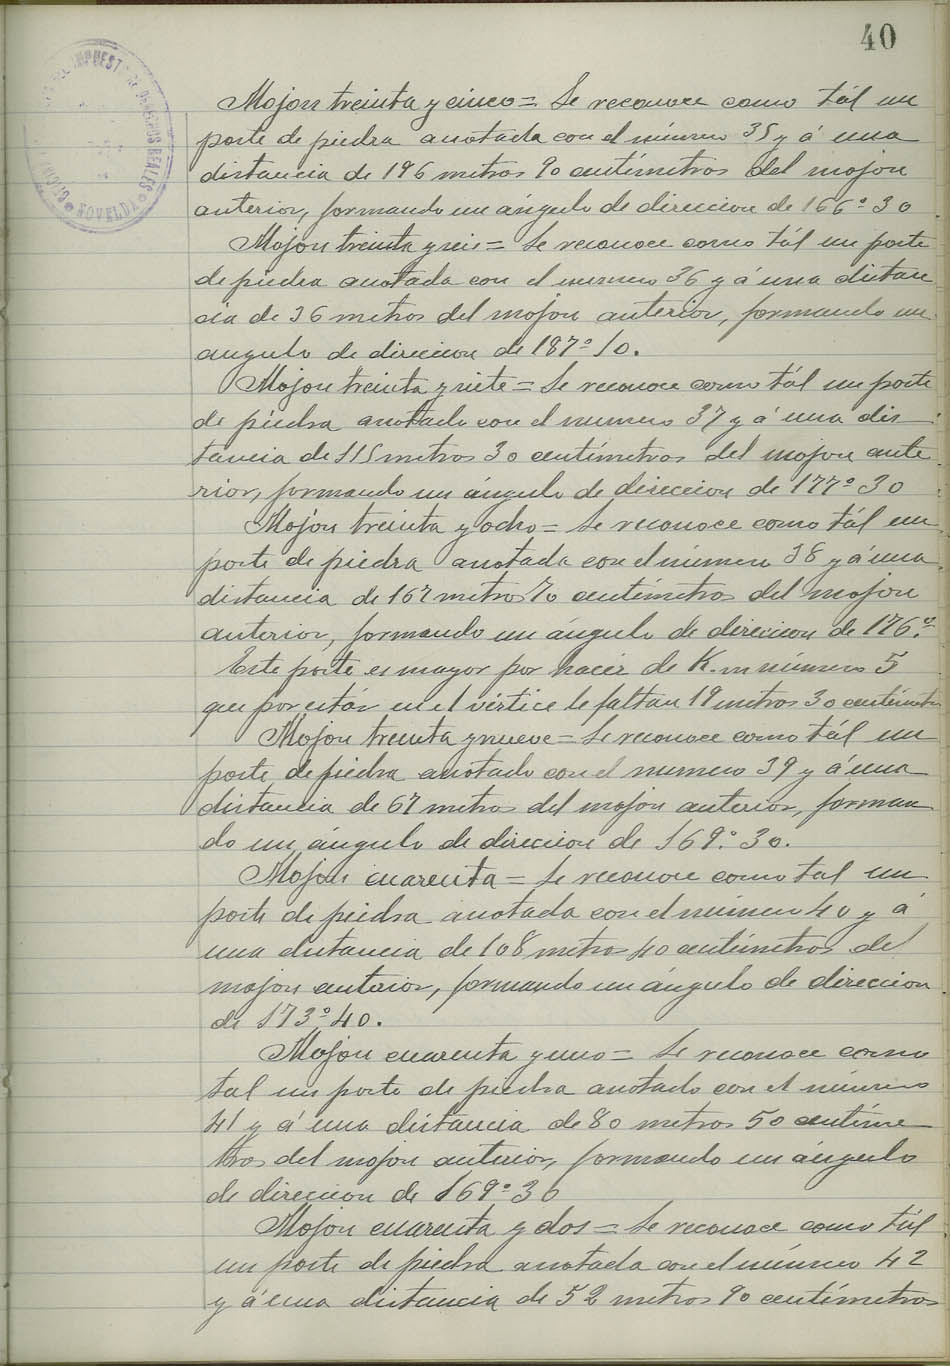 40
IMPUESTO DE DERECHOS REALES
NOVELDA
Mojon treinta y cinco = Se reconoce como tál un
poste de piedra anotada con el número 35 y á una
distancia de 196 metros 90 centímetros del mojon
anterior, formando un ángulo de direccion de 166º 30
Mojon treinta y seis = Se reconoce como tál un poste
de piedra anotada con el numero 36 y á una distan
cia de 36 metros del mojon anterior, formando un
angulo de direccion de 187º 10.
Mojon treinta y siete = Se reconoce como tál un poste
de piedra anotado con el numero 37 y á una dis
tancia de 115 metros 30 centímetros del mojon ante
rior, formando un ángulo de direccion de 177º 30
Mojon treinta y ocho = Se reconoce como tál un
poste de piedra anotada con el número 38 y á una
distancia de 167 metros 70 centímetros del mojon
anterior, formando un ángulo de direccion de 176.º
Este poste es mayor por hacer de K.m número 5
que por estár en el vértice le faltan 19 metros 30 centímetros
Mojon treinta y nueve = Se reconoce como tál un
poste de piedra anotado con el numero 39 y á una
distancia de 67 metros del mojon anterior, forman
do un ángulo de direccion de 169.º 30.
Mojon cuarenta = Se reconoce como tal un
poste de piedra anotada con el número 40 y á
una distancia de 108 metros 40 centímetros del
mojon anterior, formando un ángulo de direccion
de 173º 40.
Mojon cuarenta y uno = Se reconoce como
tal un poste de piedra anotado con el número
41 y á una distancia de 80 metros 50 centíme
tros del mojon anterior, formando un ángulo
de direccion de 169º 30
Mojon cuarenta y dos = Se reconoce como tál
un poste de piedra anotada con el número 42
y á una distancia de 52 metros 90 centímetros